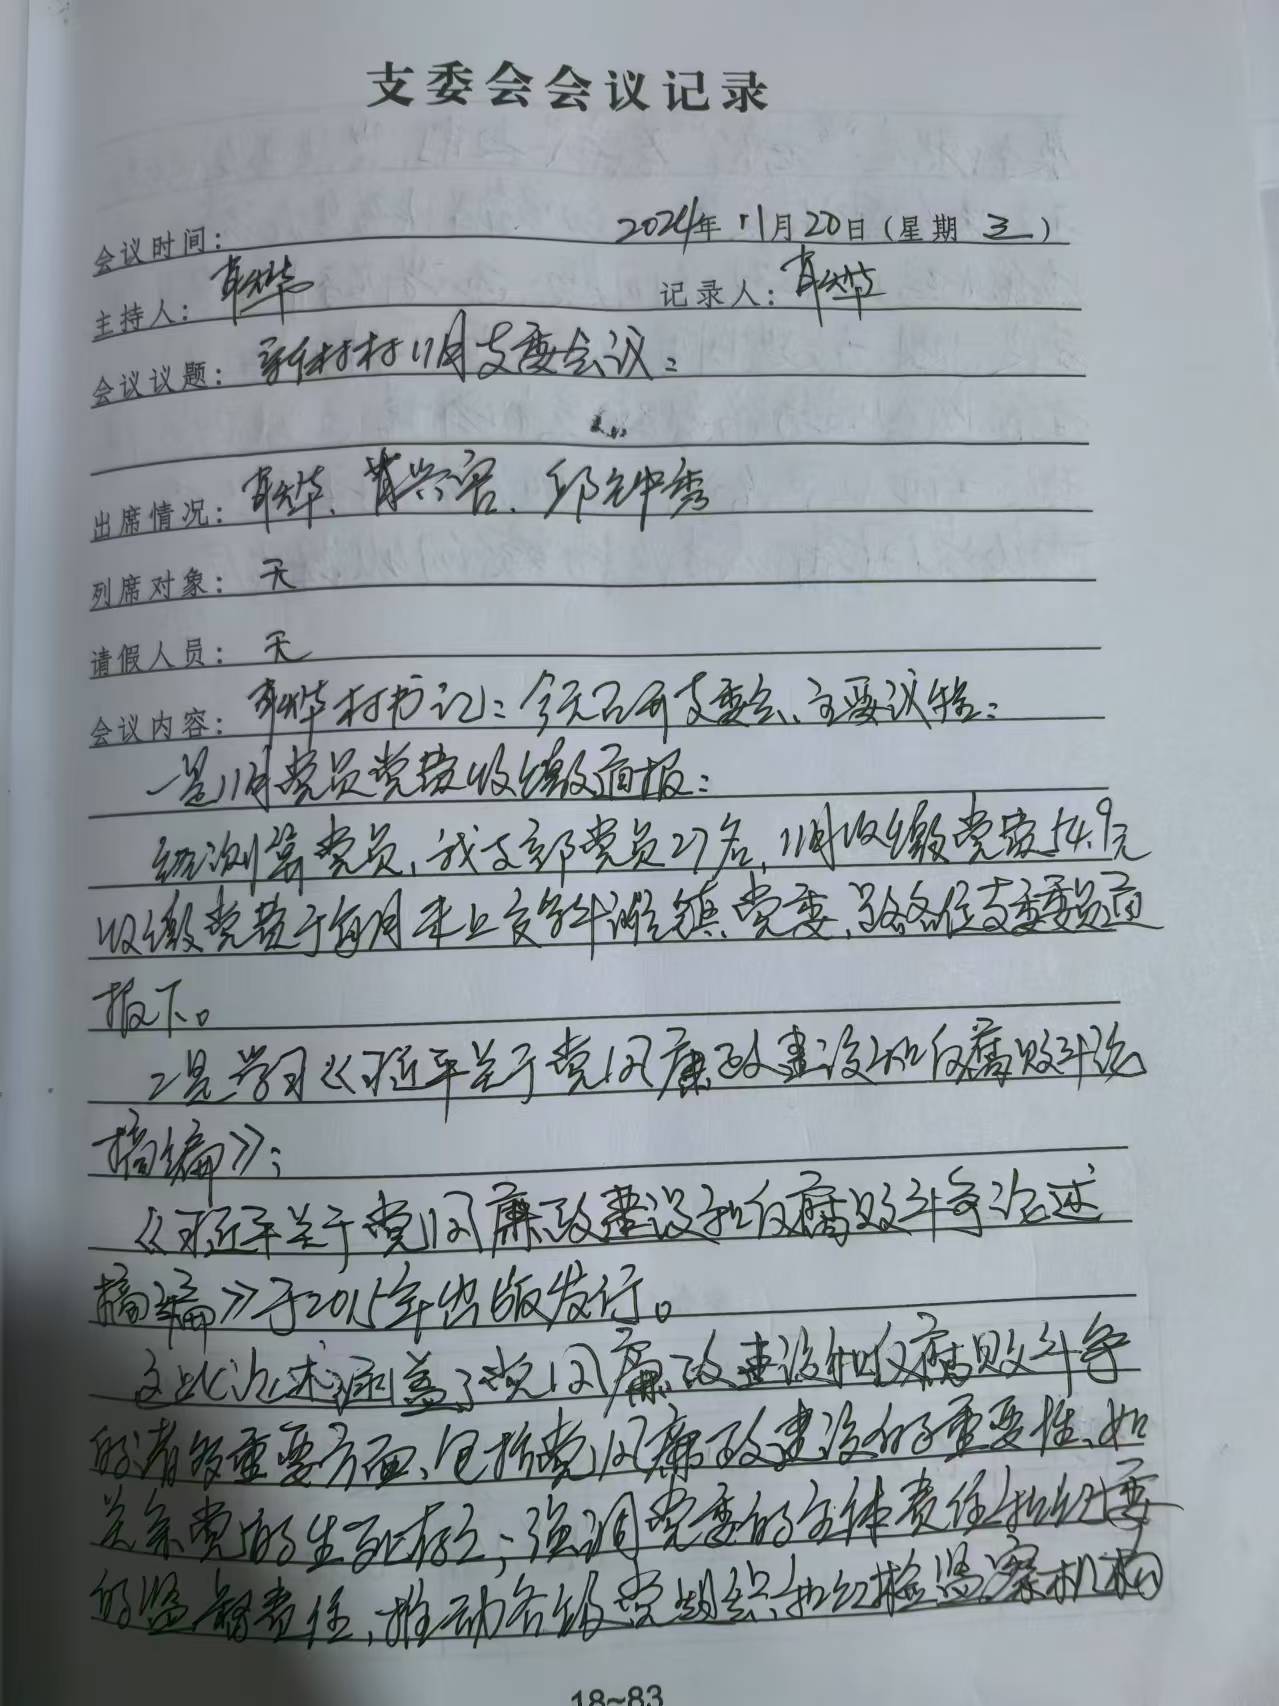 支委会会议记录
会议时间： 2024年 11月 20日（星期 三）
主持人： 记录人：
会议议题： 新村村11月支委会议：
出席情况： 肖兴 、邱 秀
列席对象： 无
请假人员： 无
会议内容： 村书记：今天召开支委会、主要议程：
一是11月党员党费收缴通报：
党员，我支部党员27名，11月收缴党费54.9元
收缴党费于每月末上交 镇党委，给各位支委委员通
报下。
二是学习《习近平关于党风廉政建设和反腐败斗论
摘编》；
《习近平关于党风廉政建设和反腐败斗争论述
摘编》于2015年出版发行。
这些论述涵盖了党风廉政建设和反腐败斗争
的诸多重要方面、包括党风廉政建设的重要性、如
关系党的生死存亡；强调党委的主体责任和纪委
的监督责任，推动各级党组织和纪检监察机构
18~83